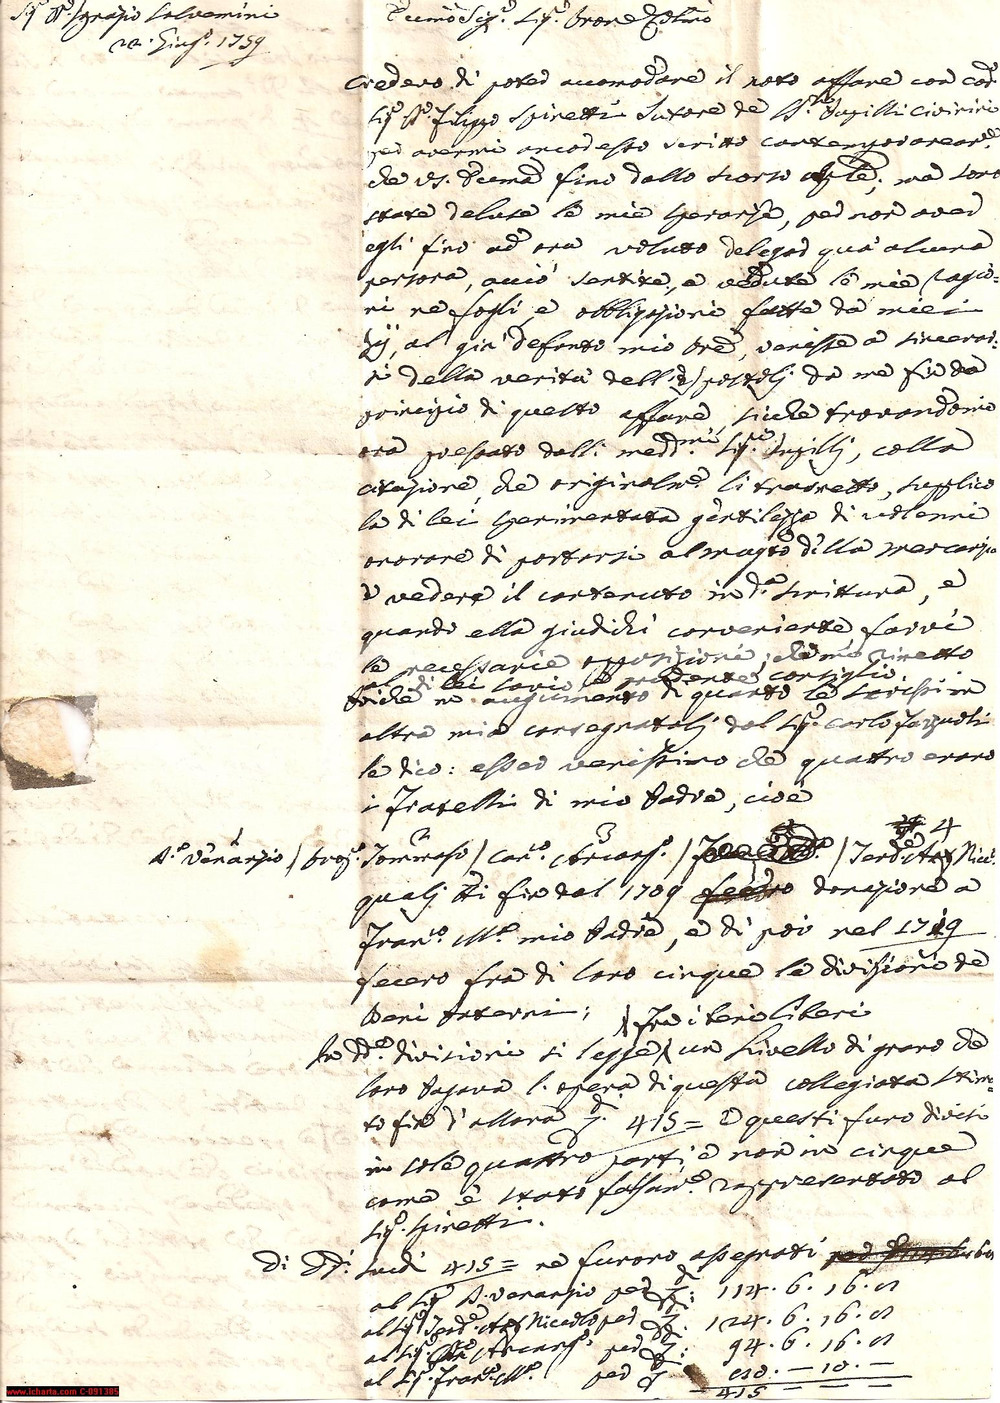 Sig.r D. Ignazio Salvemini
22. Giug.o 1759
Sig.r Sig.r Prone
Credevo di poter accomodare il noto affare con cod.o
Sig.r D. Filippo Spiretti Tutore de Pupilli
per avermi costesto scritto
che VS. fino dallo scorso; ma sono
state deluse le mie speranze, per non aver
egli fino ad ora voluto delegar quà alcuna
persona, acciò sentite, e vedute le mie ragio-
ni ne fogli, e obbligazioni fatte da miei
Zij, al già defonto mio Pre, venisse a sincerar-
si della verità dell'espostoli da me fin da
principio di questo affare sicche trovandomi
ora pressato dalli med.mi Sig.ri Pupilli, colla
citazione, che originalm.e li trasmetto, supplico
la di lei sperimentata gentilezza di volermi
onorare di portarsi al mag.to della Mercanzia
e vedere il contenuto in d.a scrittura, e
quando ella giudichi conveniente farvi
le necessarie opposizioni, che mi rimetto
al di lei savio e prudente consiglio
Poiche in augumento di quanto le scrissi in
altra mia consegnatali dal Sig.r Carlo
le dico: esser verissimo che quattro erano
i Fratelli di mio Padre, cioè
D.o Venanzio / Tommaso / Can.o Arcang.o / Ferd.o Ant. Nicc.o
quali tti fin dal 1709 donazione a
Fran.co M.a mio Padre, e di poi nel 1719
fecero fra di loro cinque le divisioni de
Beni Paterni;
fra i beni liberi
In d.e divisioni si legge un Livello di grano che
loro pagava l'opera di questa collegiata stima-
to fin d'allora 415 = e questi furo divisi
in sole quattro parti, e non in cinque
come è stato falsam.e rappresentato al
Sig.r Spiretti.
Di dd.i Scudi 415 = ne furono assegnati
al Sig.r D. Venanzio per 114. 6. 16. n
al Sig.r Ferd.o Ant Niccolo per 124. 6. 16. n
al Sig.r Arcang.o per 94. 6. 16. n
al Sig.r Fran.co M.a per — 10. —
415 = = =
www.icharta.com C-091385